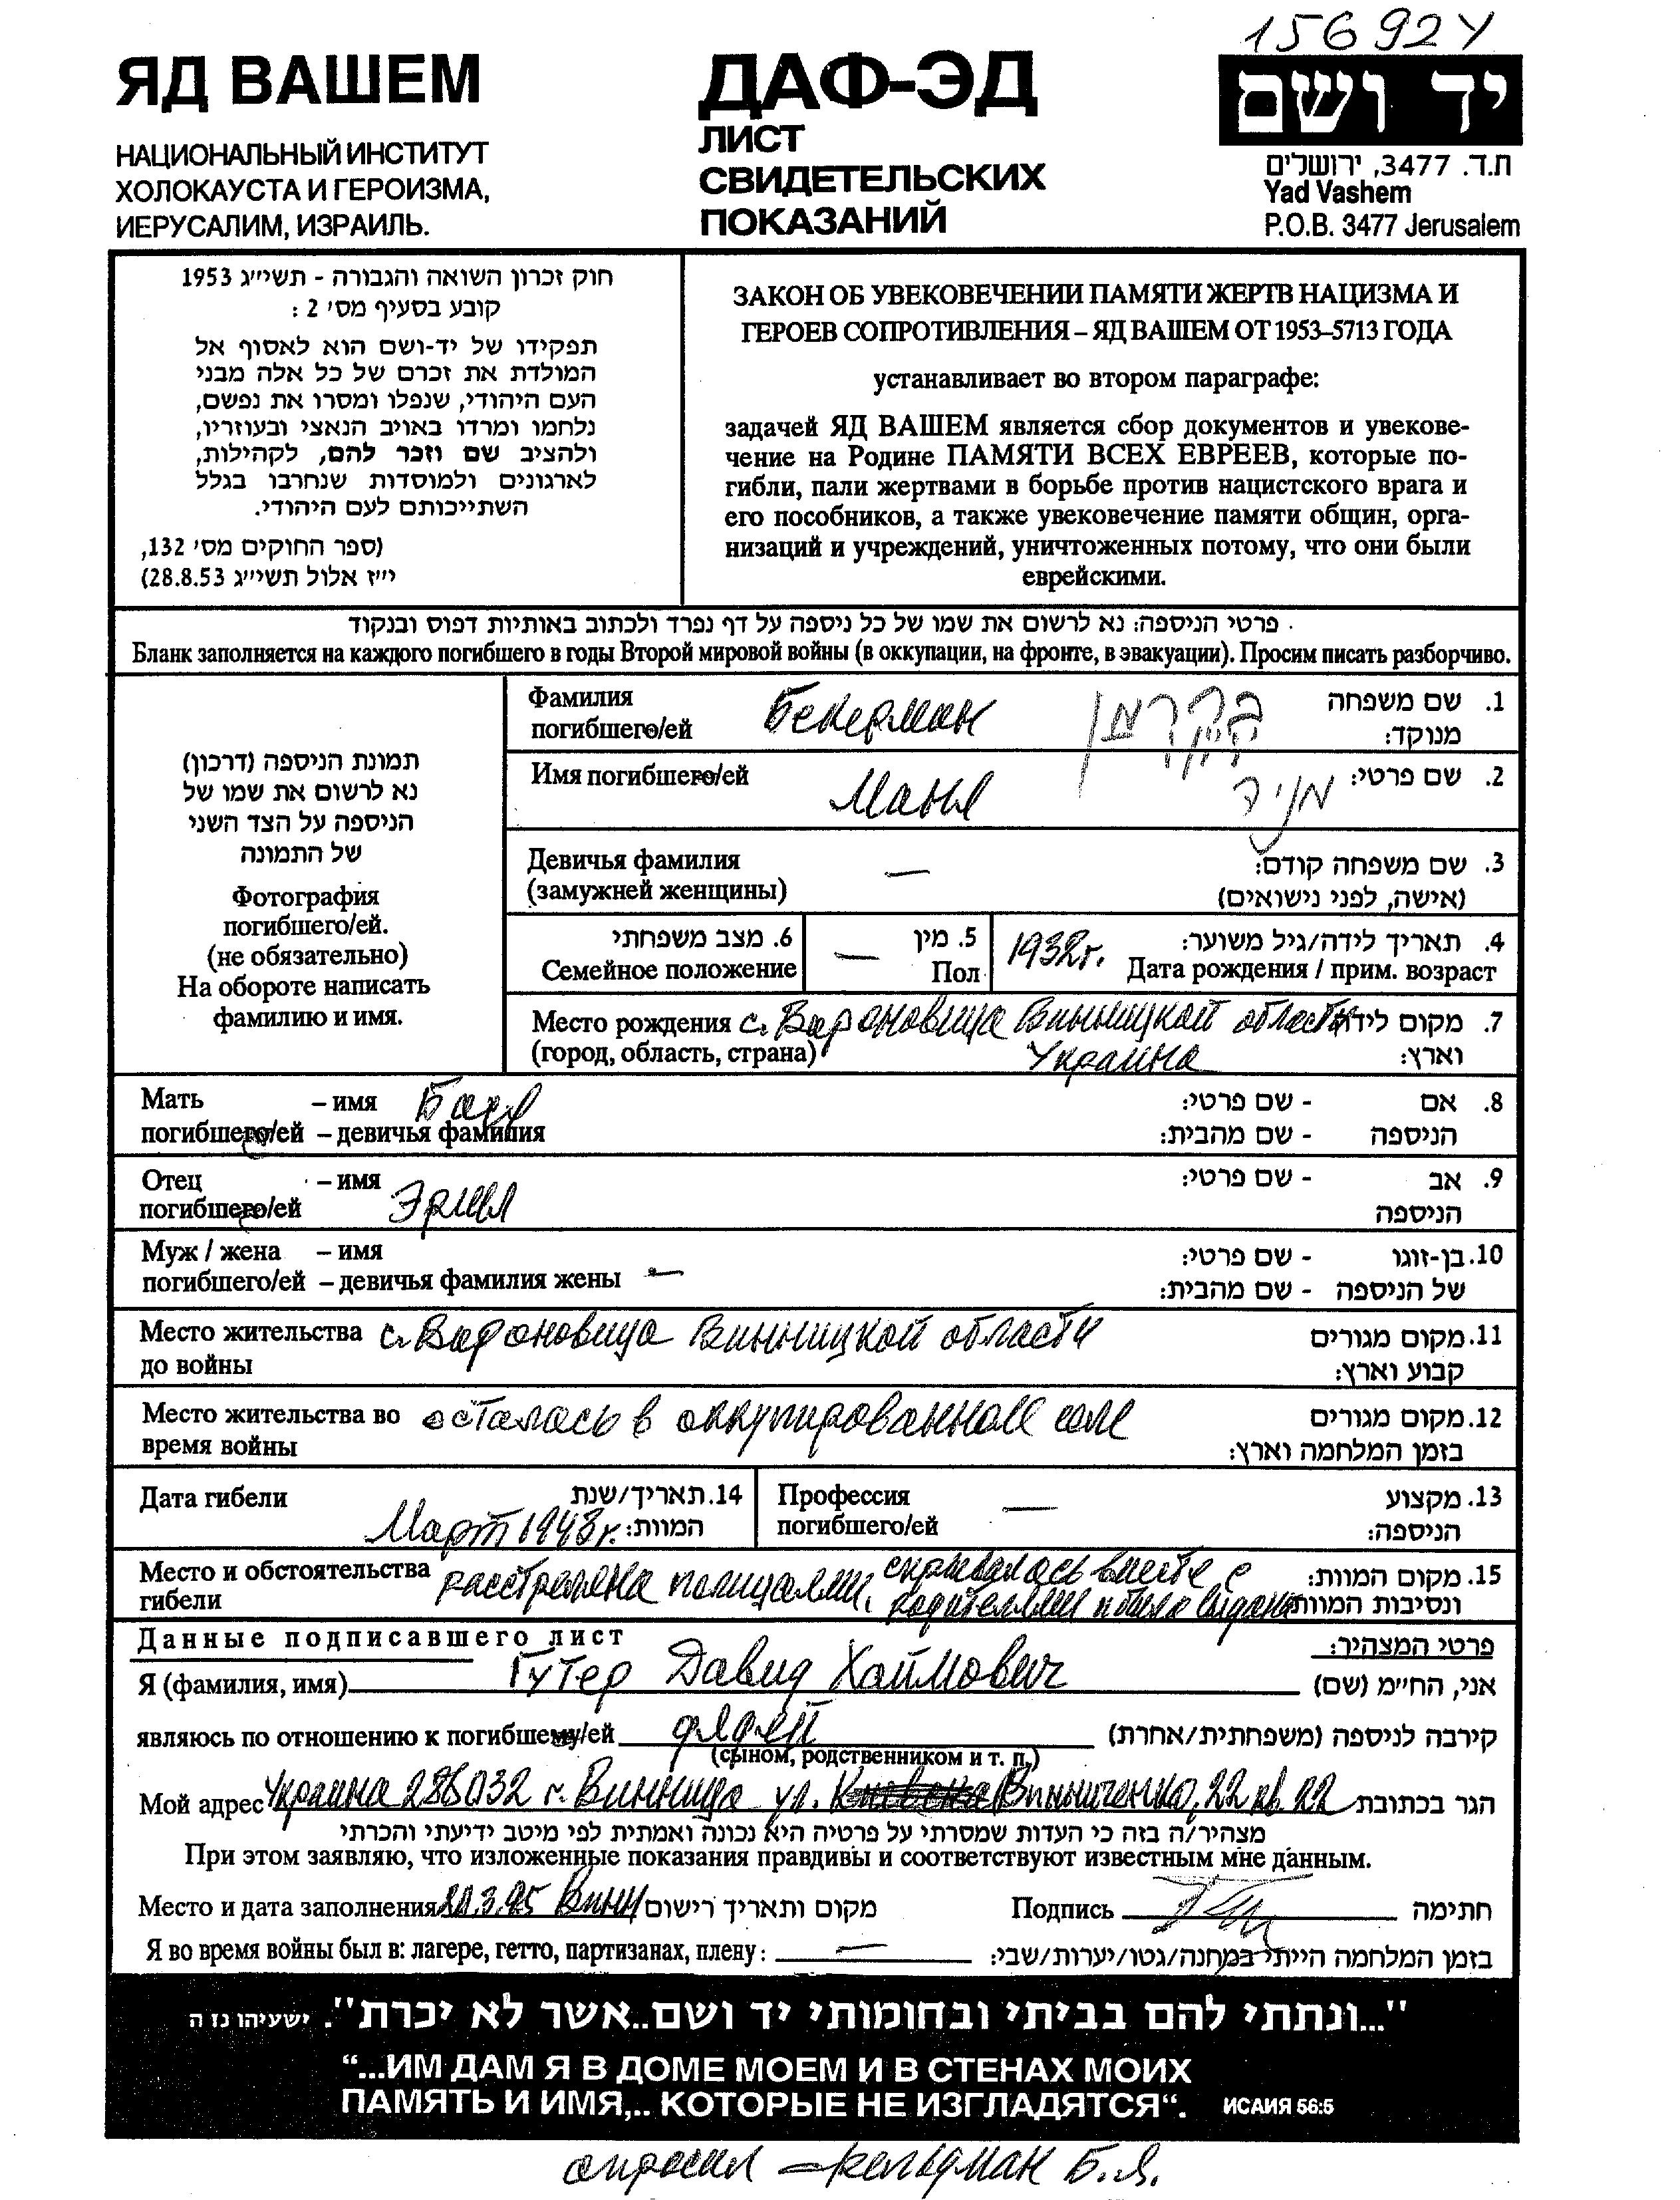 156924
ЯД ВАШЕМ
НАЦИОНАЛЬНЫЙ ИНСТИТУТ
ХОЛОКАУСТА И ГЕРОИЗМА,
ИЕРУСАЛИМ, ИЗРАИЛЬ.
ДАФ-ЭД
ЛИСТ
СВИДЕТЕЛЬСКИХ
ПОКАЗАНИЙ
יד ושם
ת.ד. 3477, ירושלים
Yad Vashem
P.O.B. 3477 Jerusalem
חוק זכרון השואה והגבורה - תשי״ג 1953
קובע בסעיף מס׳ 2 :
תפקידו של יד-ושם הוא לאסוף אל
המולדת את זכרם של כל אלה מבני
העם היהודי, שנפלו ומסרו את נפשם,
נלחמו ומרדו באויב הנאצי ובעוזריו,
ולהציב שם וזכר להם, לקהילות,
לארגונים ולמוסדות שנחרבו בגלל
השתייכותם לעם היהודי.
(ספר החוקים מס׳ 132,
י״ז אלול תשי״ג 28.8.53)
ЗАКОН ОБ УВЕКОВЕЧЕНИИ ПАМЯТИ ЖЕРТВ НАЦИЗМА И
ГЕРОЕВ СОПРОТИВЛЕНИЯ – ЯД ВАШЕМ ОТ 1953–5713 ГОДА
устанавливает во втором параграфе:
задачей ЯД ВАШЕМ является сбор документов и увекове-
чение на Родине ПАМЯТИ ВСЕХ ЕВРЕЕВ, которые по-
гибли, пали жертвами в борьбе против нацистского врага и
его пособников, а также увековечение памяти общин, орга-
низаций и учреждений, уничтоженных потому, что они были
еврейскими.
פרטי הניספה: נא לרשום את שמו של כל ניספה על דף נפרד ולכתוב באותיות דפוס ובנקוד
Бланк заполняется на каждого погибшего в годы Второй мировой войны (в оккупации, на фронте, в эвакуации). Просим писать разборчиво.
תמונת הניספה (דרכון)
נא לרשום את שמו של
הניספה על הצד השני
של התמונה
Фотография
погибшего/ей.
(не обязательно)
На обороте написать
фамилию и имя.
Фамилия Бекерман בקרמן 1. שם משפחה
погибшего/ей מנוקד:
Имя погибшего/ей Маня מניה 2. שם פרטי:
Девичья фамилия — 3. שם משפחה קודם:
(замужней женщины) (אישה, לפני נישואים)
6. מצב משפחתי 5. מין 1932г. 4. תאריך לידה/גיל משוער:
Семейное положение — Пол Дата рождения / прим. возраст
Место рождения с. Вороновица Винницкой области 7. מקום לידה
(город, область, страна) Украина וארץ:
Мать – имя Бася 8. אם - שם פרטי:
погибшего/ей – девичья фамилия הניספה - שם מהבית:
Отец – имя Эршл 9. אב - שם פרטי:
погибшего/ей הניספה
Муж / жена – имя 10. בן-זוגו - שם פרטי:
погибшего/ей – девичья фамилия жены — של הניספה - שם מהבית:
Место жительства с. Вороновица Винницкой области 11. מקום מגורים
до войны קבוע וארץ:
Место жительства во осталась в оккупированном селе 12. מקום מגורים
время войны בזמן המלחמה וארץ:
Дата гибели 14. תאריך/שנת Профессия — 13. מקצוע
Март 1943г. המוות: погибшего/ей הניספה:
Место и обстоятельства расстреляна полицаями, скрывалась вместе с 15. מקום המוות:
гибели родителями и была выдана ונסיבות המוות
Данные подписавшего лист פרטי המצהיר:
Я (фамилия, имя) Гутер Давид Хаймович אני, החי״מ (שם)
являюсь по отношению к погибшему/ей дядей קירבה לניספה (משפחתית/אחרת)
(сыном, родственником и т. п.)
Мой адрес Украина 286032 г. Винница ул. Винниченко, 22 кв. 22 הגר בכתובת
מצהיר/ה בזה כי העדות שמסרתי על פרטיה היא נכונה ואמתית לפי מיטב ידיעתי והכרתי
При этом заявляю, что изложенные показания правдивы и соответствуют известным мне данным.
Место и дата заполнения 3.95 Винн מקום ותאריך רישום Подпись חתימה
Я во время войны был в: лагере, гетто, партизанах, плену: — בזמן המלחמה הייתי במחנה/גטו/יערות/שבי:
"...ונתתי להם בביתי ובחומותי יד ושם..אשר לא יכרת". ישעיהו נז ה
“...ИМ ДАМ Я В ДОМЕ МОЕМ И В СТЕНАХ МОИХ
ПАМЯТЬ И ИМЯ,.. КОТОРЫЕ НЕ ИЗГЛАДЯТСЯ“. ИСАИЯ 56:5
опросил – Фельдман Б.Я.